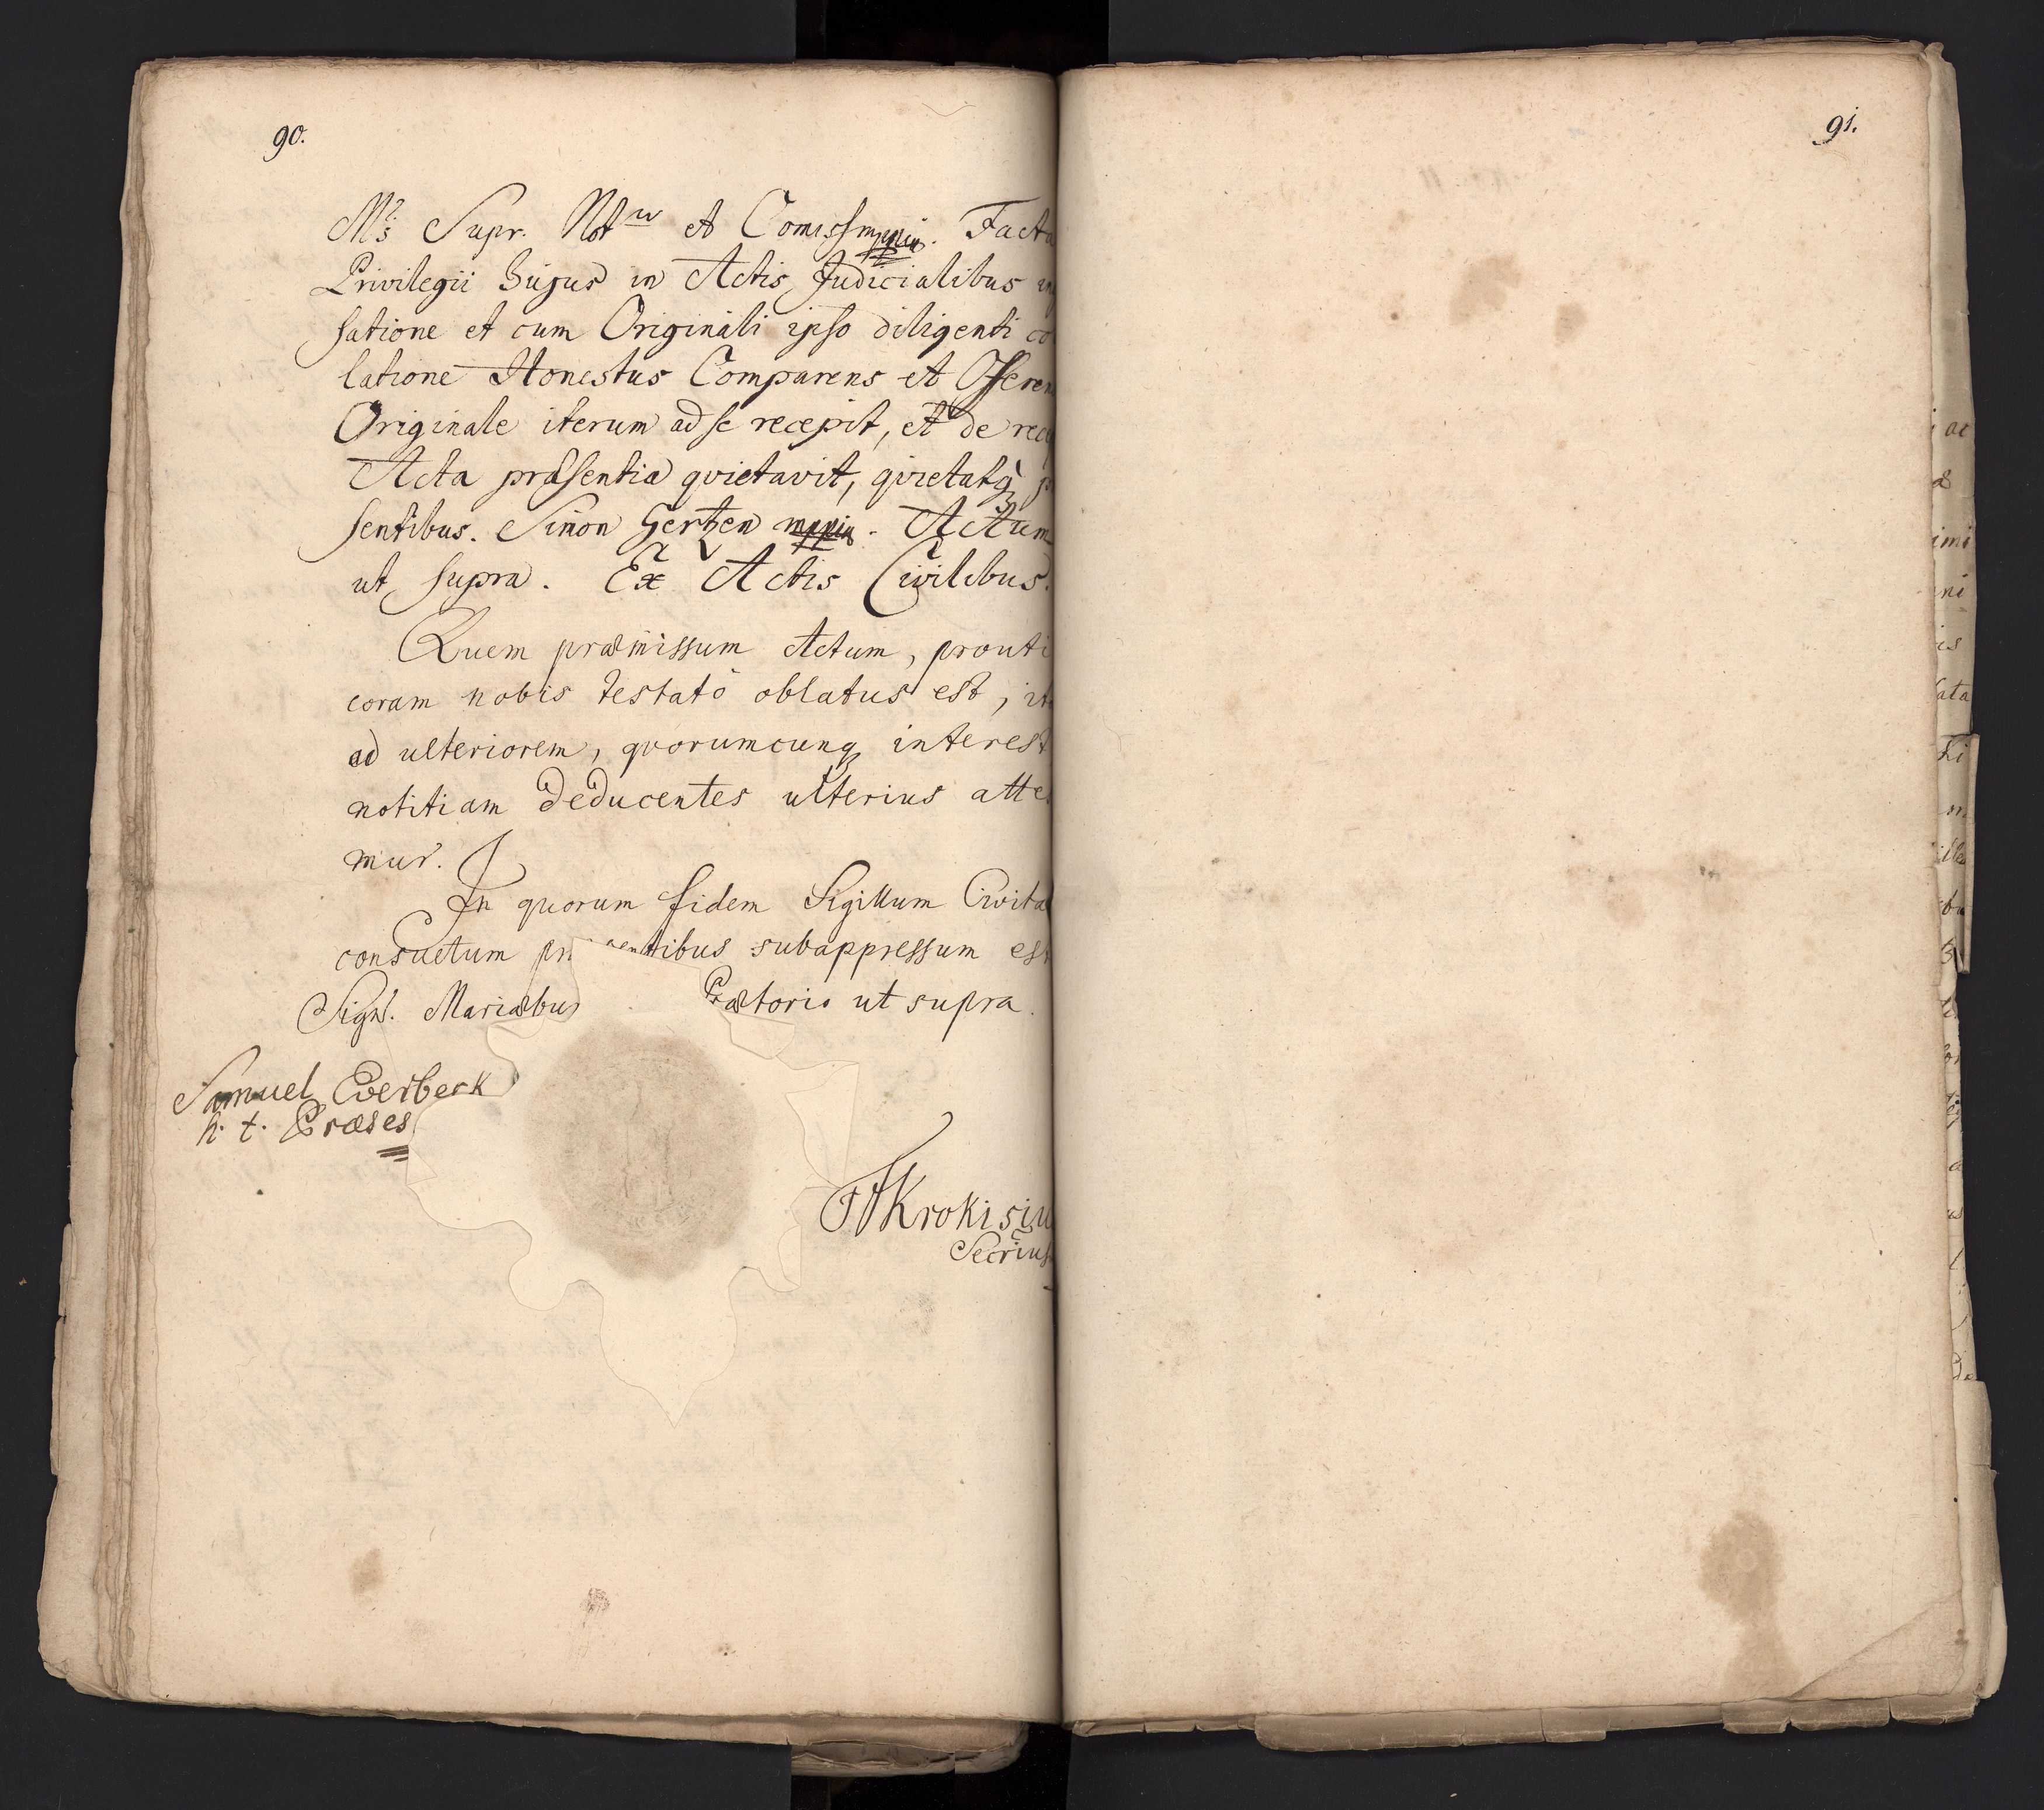 90.
Ms Supr. Not et Comissmppria. Facta
Privilegii hujus in Actis Judicialibus in
satione et cum Originali ipso diligenti co
latione Honestus Comparens et Offeren
Originale iterum ad se recepit, et de rece
Acta præsentia qvietavit, qvietatq p
sentibus. Simon Gertzen mppria. Actum
ut supra. Ex Actis Civilibus.
Quem præmissum Actum, prouti
coram nobis testatò oblatus est, it
ad ulteriorem, qvorumcunq interest
notitiam deducentes ulterius atte
mur.
In quorum fidem Sigillum Civita
consuetum præsentibus subappressum est
Sign. Mariæbu Prætorio ut supra.
Samuel Everbeck
h. t. Præses
Krokisiu
Secrius
91.